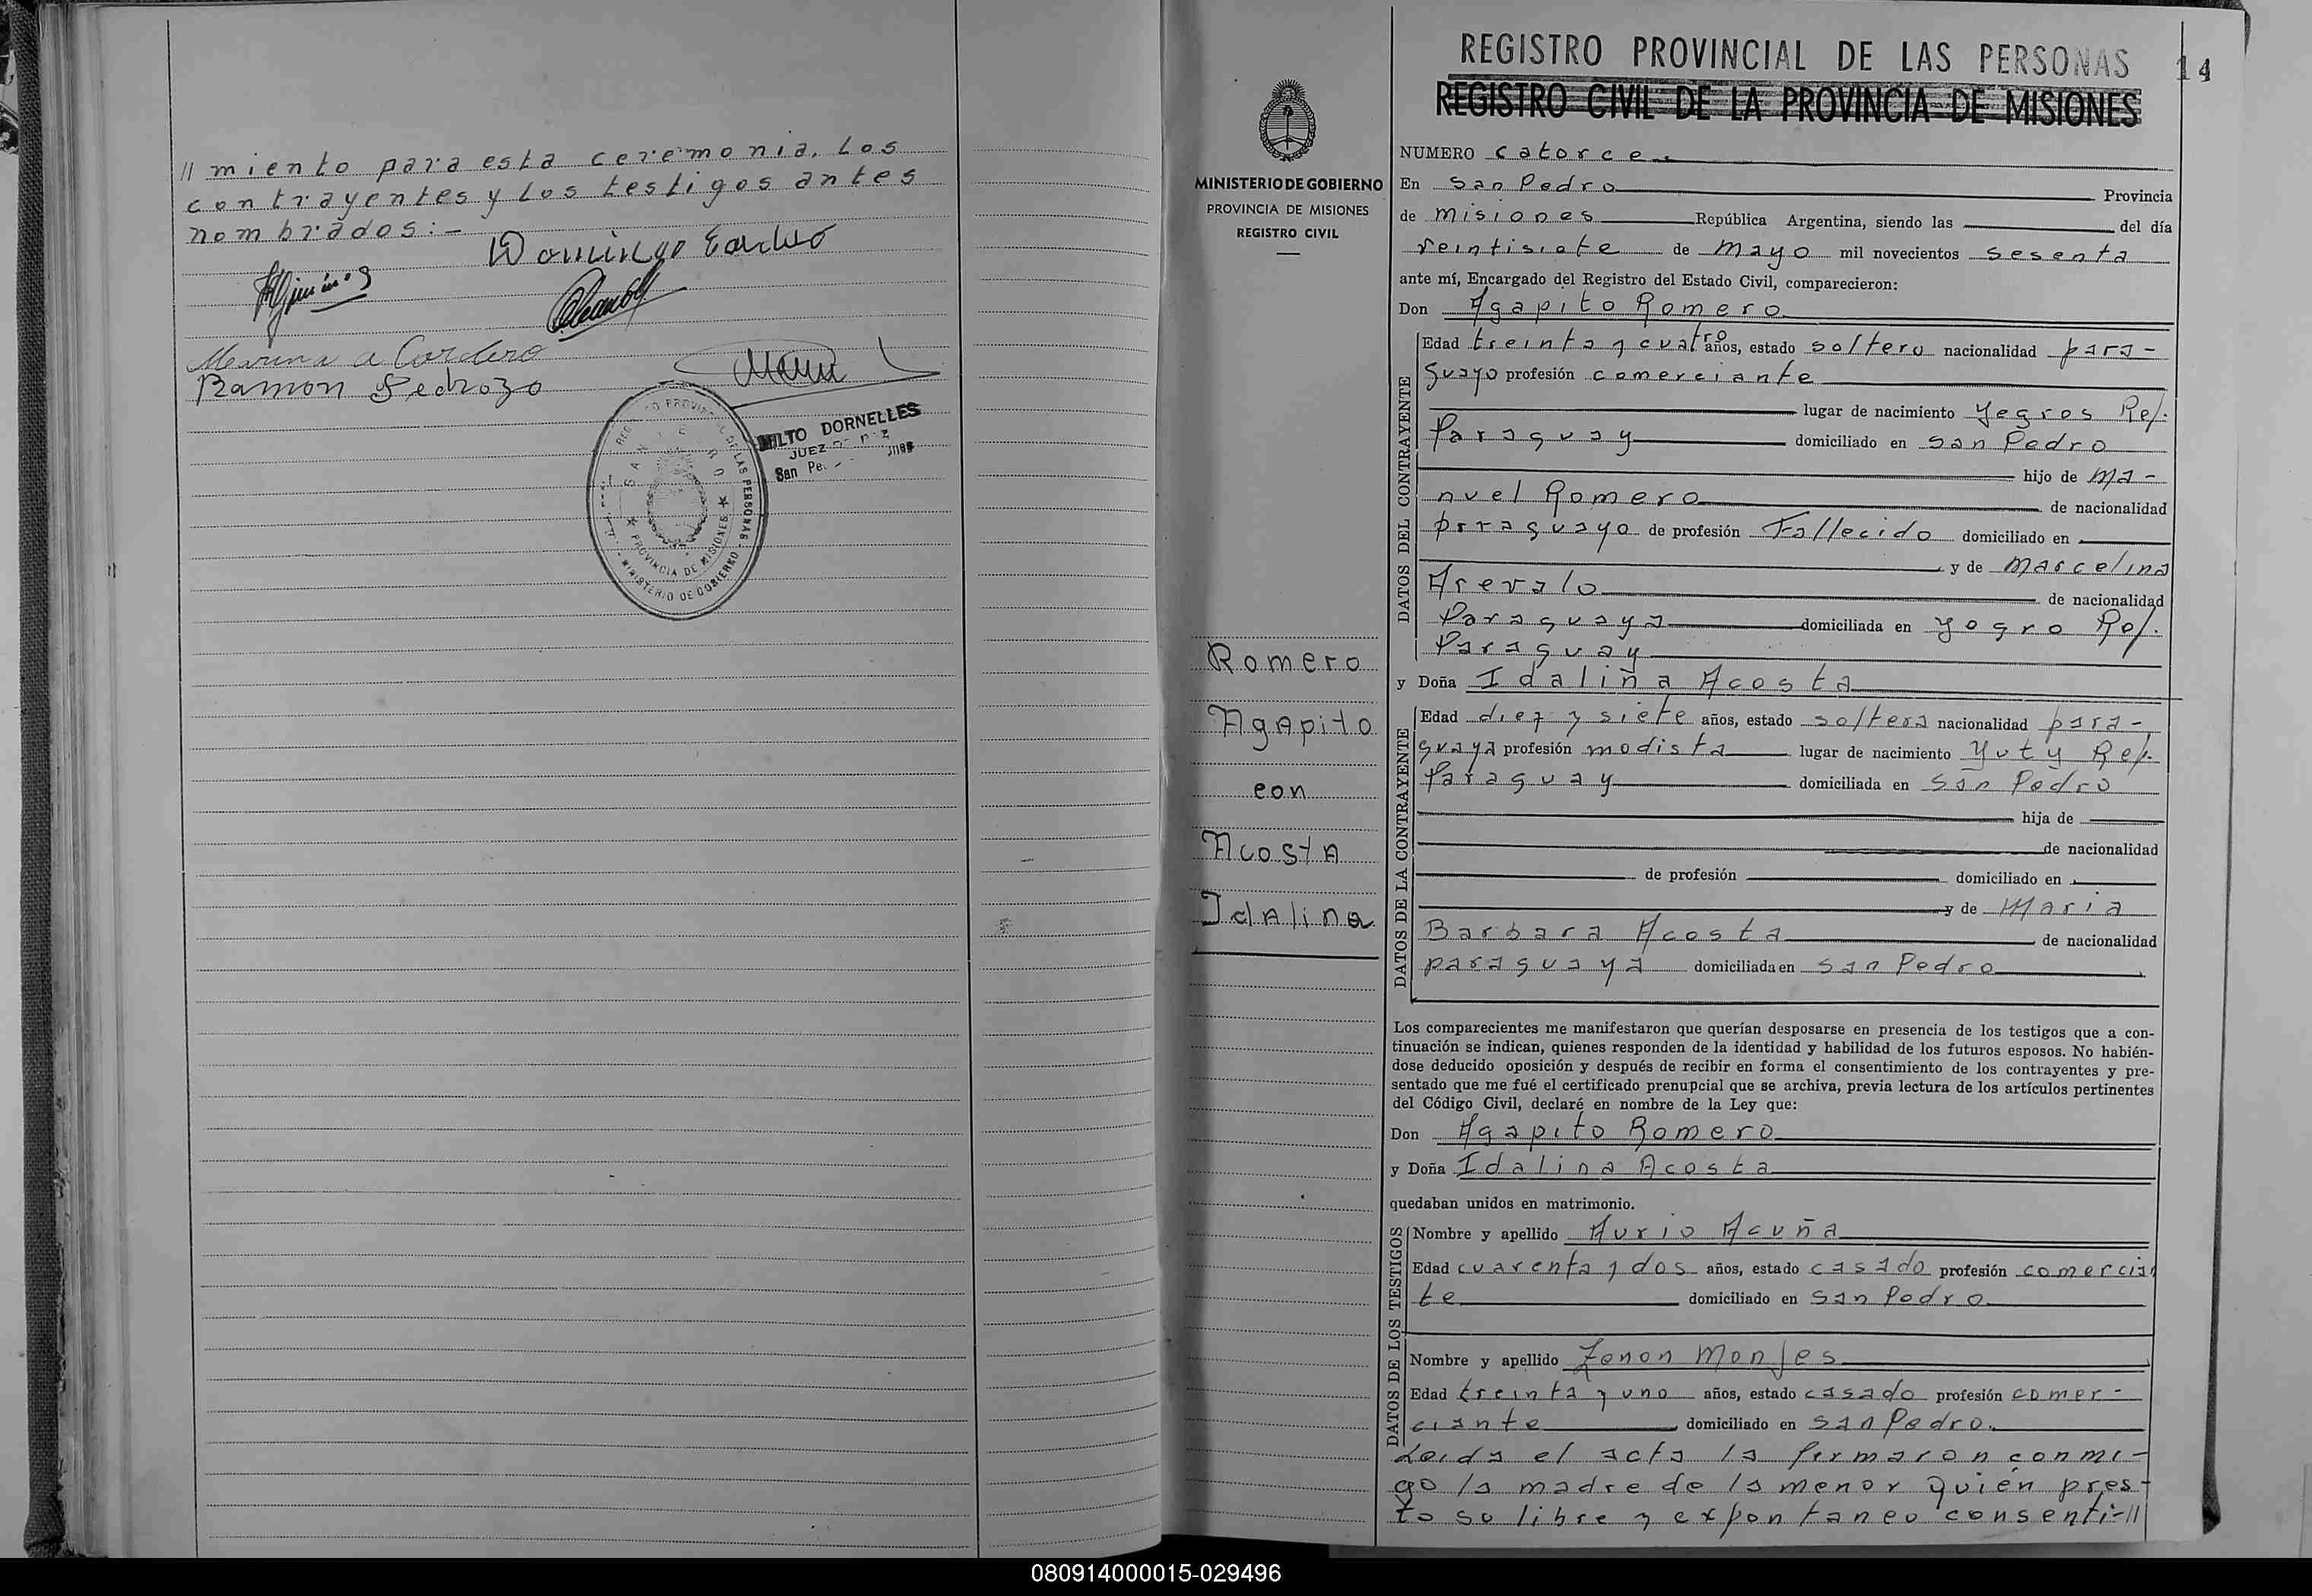 // miento para esta ceremonia. Los
contrayentes y los testigos antes
nombrados:-
Domingo
Marina a Cordero
Ramon Pedrozo
MILTO DORNELLES
JUEZ
San Pe
PROVINCIA DE MISIONES
MINISTERIO DE GOBIERNO
DE LAS PERSONAS
REGISTRO PROVINCIAL DE LAS PERSONAS
14
REGISTRO CIVIL DE LA PROVINCIA DE MISIONES
MINISTERIO DE GOBIERNO
PROVINCIA DE MISIONES
REGISTRO CIVIL
Romero
Agapito
con
Acosta
Idalina
NUMERO catorce.
En San Pedro Provincia
de misiones República Argentina, siendo las del día
veintisiete de mayo mil novecientos sesenta
ante mí, Encargado del Registro del Estado Civil, comparecieron:
Don Agapito Romero
DATOS DEL CONTRAYENTE
Edad treinta y cuatro años, estado soltero nacionalidad para-
guayo profesión comerciante
lugar de nacimiento Yegros Rep.
Paraguay domiciliado en San Pedro
hijo de Ma-
nuel Romero de nacionalidad
paraguayo de profesión Fallecido domiciliado en
y de Marcelina
Arevalo de nacionalidad
Paraguaya domiciliada en Yegro Rep.
Paraguay
y Doña Idalina Acosta
DATOS DE LA CONTRAYENTE
Edad diez y siete años, estado soltera nacionalidad para-
guaya profesión modista lugar de nacimiento Yuty Rep.
Paraguay domiciliada en San Pedro
hija de
de nacionalidad
de profesión domiciliado en
y de Maria
Barbara Acosta de nacionalidad
paraguaya domiciliada en San Pedro
Los comparecientes me manifestaron que querían desposarse en presencia de los testigos que a con-
tinuación se indican, quienes responden de la identidad y habilidad de los futuros esposos. No habién-
dose deducido oposición y después de recibir en forma el consentimiento de los contrayentes y pre-
sentado que me fué el certificado prenupcial que se archiva, previa lectura de los artículos pertinentes
del Código Civil, declaré en nombre de la Ley que:
Don Agapito Romero
y Doña Idalina Acosta
quedaban unidos en matrimonio.
DATOS DE LOS TESTIGOS
Nombre y apellido Aurio Acuña
Edad cuarenta y dos años, estado casado profesión comercian
te domiciliado en San Pedro
Nombre y apellido Zenon Monjes
Edad treinta y uno años, estado casado profesión comer-
ciante domiciliado en San Pedro.
Leida el acta la firmaron conmi-
go la madre de la menor quién pres-
to su libre y expontaneo consenti-//
080914000015-029496